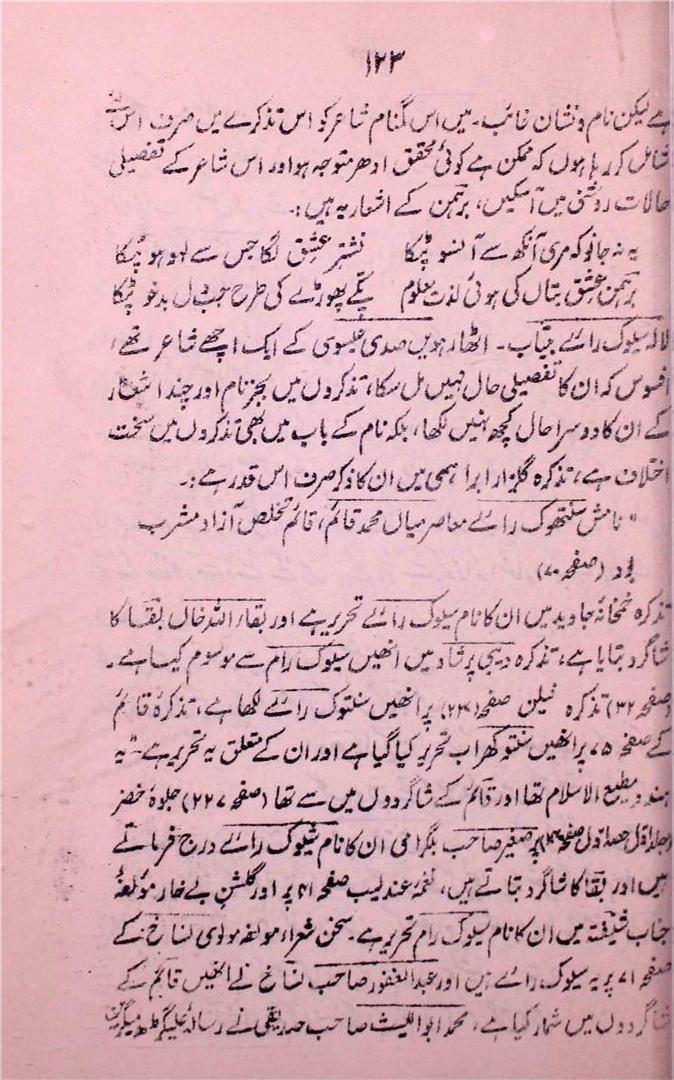 ۱۲۳
ہے لیکن نام و نشان غائب۔ میں اس گمنام شاعر کو اس تذکرے میں صرف اس لئے
شامل کر رہا ہوں کہ ممکن ہے کوئی محقق ادھر متوجہ ہو اور اس شاعر کے تفصیلی
حالات روشنی میں آ سکیں، برہمن کے اشعار یہ ہیں:۔
یہ نہ جانو کہ مری آنکھ سے آنسو ٹپکا نشترِ عشق لگا جس سے لہو ہو ٹپکا
برہمن عشقِ بتاں کی ہوئی لذت معلوم پکے پھوڑے کی طرح جب دل بدخو ٹپکا
لالہ سیلوک رائے بیتاب۔ اٹھارہویں صدی عیسوی کے ایک اچھے شاعر تھے،
افسوس کہ ان کا تفصیلی حال نہیں مل سکا، تذکروں میں بجز نام اور چند اشعار
کے ان کا دوسرا حال کچھ نہیں لکھا، بلکہ نام کے باب میں بھی تذکروں میں سخت
اختلاف ہے، تذکرہ گلزار ابراہیمی میں ان کا ذکر صرف اس قدر ہے:۔
"نامش سنتھوک رائے معاصر میاں محمد قائم، قائم تخلص آزاد مشرب
بود (صفحہ ۷۰)
تذکرہ خمخانۂ جاوید میں ان کا نام سیلوک رائے تحریر ہے اور بقاء اللہ خاں بقا کا
شاگرد بتایا ہے، تذکرہ دیبی پرشاد میں انھیں سیلوک رام سے موسوم کیا ہے۔
(صفحہ ۳۲) تذکرہ فیلن صفحہ (۲۳۰) پر انھیں سنتوک رائے لکھا ہے، تذکرۂ قائم
کے صفحہ ۷۵ پر انھیں سنتوکھراب تحریر کیا گیا ہے اور ان کے متعلق یہ تحریر ہے۔ "یہ
ہندو مطیع الاسلام تھا اور قائم کے شاگردوں میں سے تھا (صفحہ ۲۲۷) جلوۂ خضر
(جلد اول حصہ اول صفحہ) پر صغیر صاحب بلگرامی ان کا نام شیلوک رائے درج فرماتے
ہیں اور بقا کا شاگرد بتاتے ہیں، نغمۂ عندلیب صفحہ ۴۱ پر اور گلشن بے خار مولفۂ
جناب شیفتہ میں ان کا نام سیلوک رام تحریر ہے۔ سخن شعراء مولفہ مولوی نساخ کے
صفحہ ۷۱ پر یہ سیلوک رائے ہیں اور عبدالغفور صاحب نساخ نے انھیں قائم کے
شاگردوں میں شمار کیا ہے، محمد ابواللیث صاحب صدیقی نے رسالہ علیگڑھ میگزین